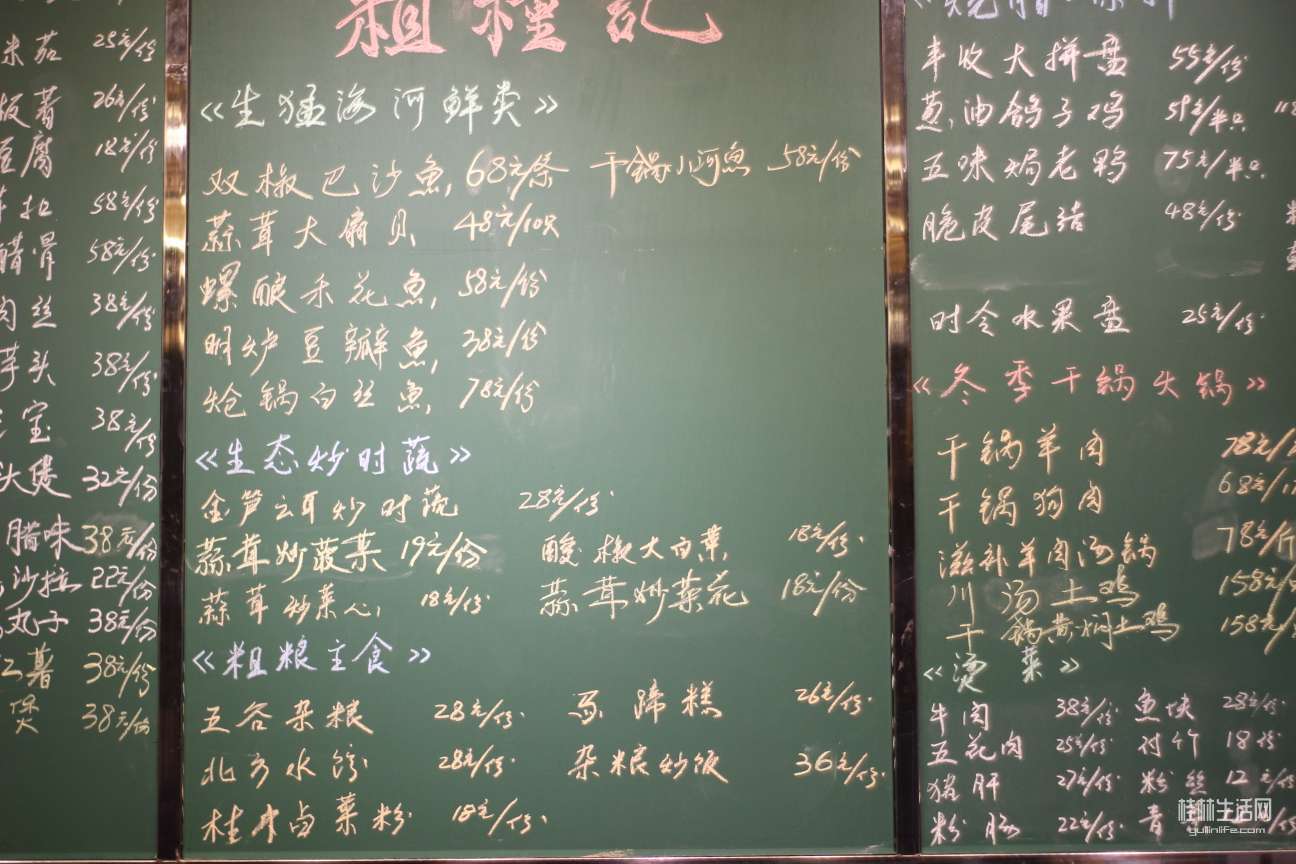 米茄 25元/份
板薯 26元/份
豆腐 18元/份
58元/份
醋骨 58元/份
肉丝 38元/份
芋头 38元/份
宝 38元/份
头煲 32元/份
腊味 38元/份
沙拉 22元/份
丸子 38元/份
红薯 38元/份
煲 38元/份
粗粮记
《生猛海河鲜类》
双椒巴沙鱼 68元/条 干锅小河鱼 58元/份
蒜茸大扇贝 48元/10只
螺酿禾花鱼 58元/份
明炉豆瓣鱼 38元/份
炝锅白丝鱼 78元/份
《生态炒时蔬》
金笋云耳炒时蔬 28元/份
蒜茸炒菠菜 19元/份 酸椒大白菜 18元/份
蒜茸炒菜心 18元/份 蒜茸炒菜花 18元/份
《粗粮主食》
五谷杂粮 28元/份 马蹄糕 26元/份
北方水饺 28元/份 杂粮炒饭 36元/份
桂林卤菜粉 18元/份
丰收大拼盘 55元/份
葱油鸽子鸡 59元/半只
五味焗老鸭 75元/半只
脆皮尾结 48元/份
时令水果盘 25元/份
《冬季干锅火锅》
干锅羊肉 78元/
干锅狗肉 68元/
滋补羊肉汤锅 78元/斤
川汤土鸡 158元/
干锅黄焖土鸡 158元/
《烫菜》
牛肉 38元/份 鱼块 28元/份
五花肉 25元/份 付竹 18份
猪肝 27元/份 粉丝 12元/份
粉肠 22元/份 青
桂林生活网
guilinlife.com